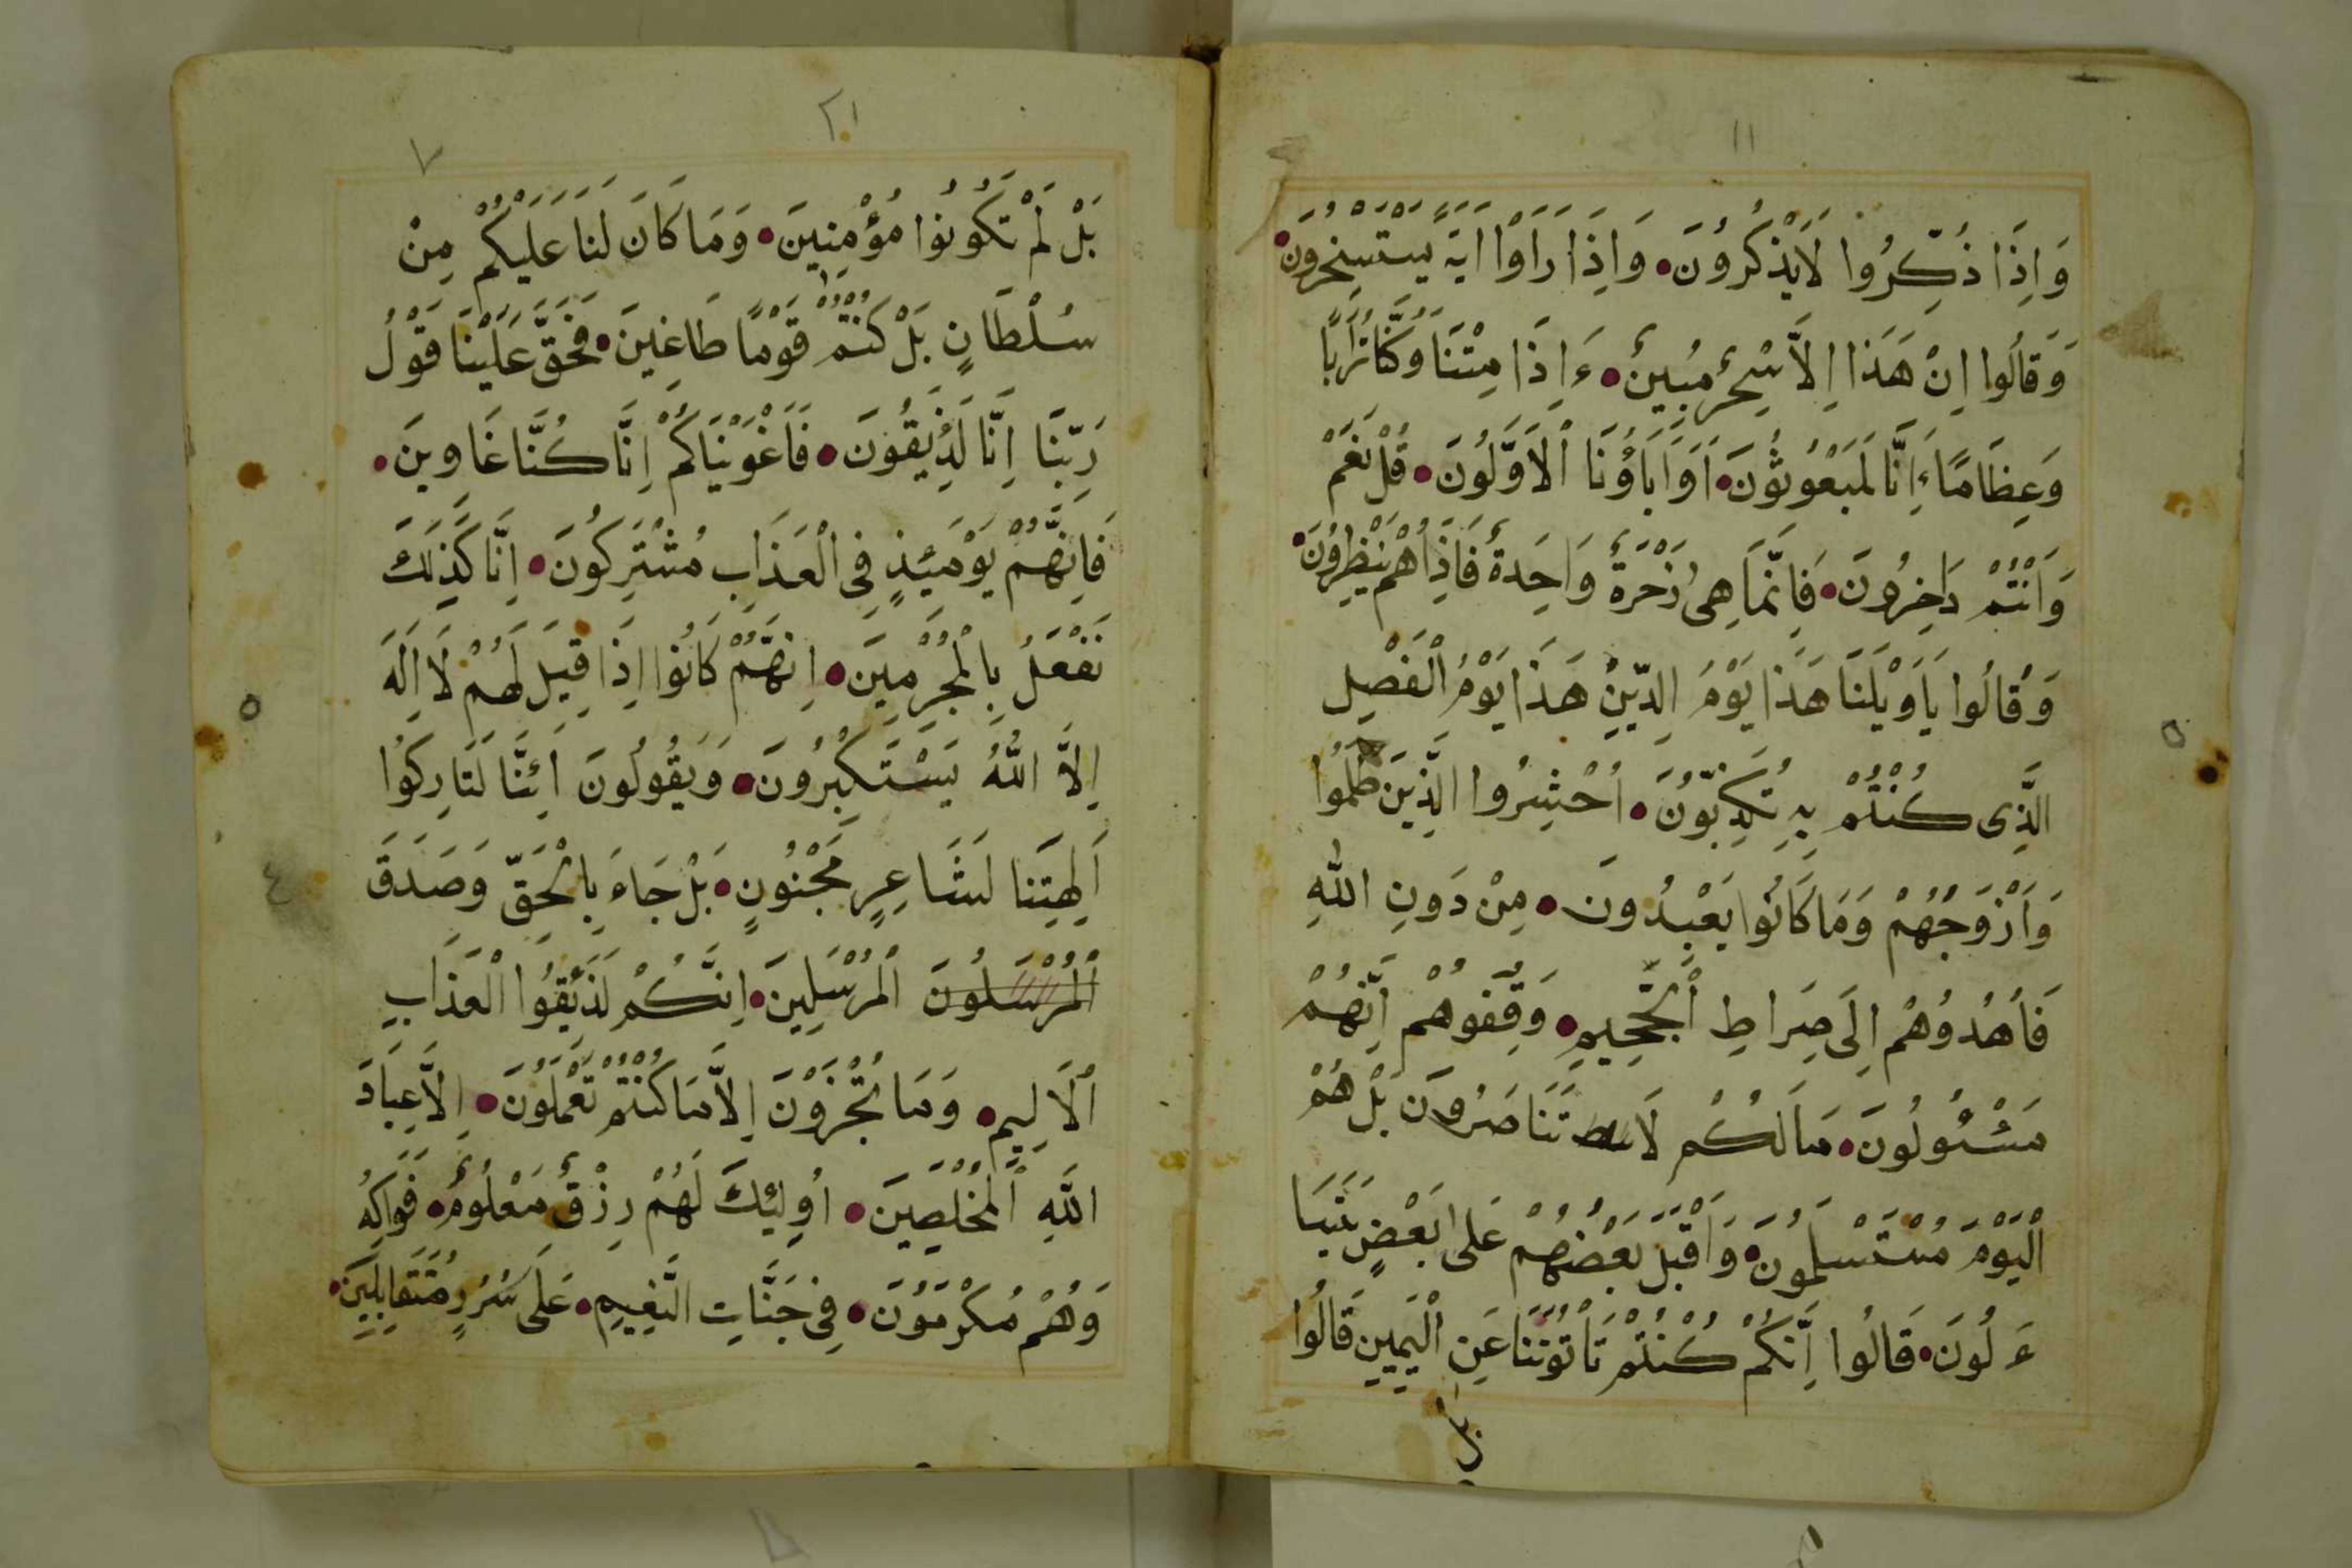 ١١
وَاِذَا ذُكِّرُوا لَايَذْكُرُونَ۰ وَاِذَا رَاَوْا ايَةً يَسْتَسْخِرُونَ۰
وَقَالُوا اِنْ هَذَا اِلاَّ سِحْرٌ مُبِينٌ۰ ءَاِذَا مِتْنَا وَكُنَّا تُرَابًا
وَعِظَامًا ءَاِنَّا لَمَبْعُوثُونَ۰ اَوَابَاؤُنَا اْلاَوَّلُونَ۰ قُلْ نَعَمْ
وَاَنْتُمْ دَاخِرُونَ۰ فَاِنَّمَا هِىَ زَجْرَةٌ وَاحِدَةٌ فَاِذَا هُمْ يَنْظِرُونَ۰
وَقَالُوا يَاوَيْلَنَا هَذَا يَوْمُ الدِّينِ هَذَا يَوْمُ اْلفَصْلِ
الَّذِى كُنْتُمْ بِهِ تُكَذِّبُونَ۰ اُحْشِرُوا الَّذِينَ ظَلَمُوا
وَاَزْوَجُهُمْ وَمَا كَانُوا يَعْبِدُونَ۰ مِنْ دَونِ اللهِ
فَأهْدُوُهُمْ اِلَى صِرَاطِ اْلجَّحِيمِ۰ وَقِفُوهُمْ اِنَّهُمْ
مَسْئُولُونَ۰ مَالَكُمْ لَا تَنَاصَرُونَ بَلْ هُمُ
اْليَوْمَ مُسْتَسْلِمُونَ۰ وَاَقْبَلَ بَعْضُهُمْ عَلى بَعْضٍ يَتَسَا
ءَلُونَ۰ قَالُوا اِنَّكُمْ كُنْتُمْ تَاتُونَنَا عَنِ اْليَمِينِ قَالُوا
بل
٢١
٧
بَلْ لَمْ تَكُونُوا مُؤْمِنِينَ۰ وَمَا كَانَ لَنَا عَلَيْكُمْ مِنْ
سُلْطَانٍ بَلْ كُنْتُمْ قَوْمًا طَاغِينَ۰ فَحَقَّ عَلَيْنَا قَوْلُ
رَبِّنَا اِنَّا لَذِيَقُونَ۰ فَاَغْوَيْنَاكُمْ اِنَّا كُنَّا غَاوِينَ۰
فَاِنَّهُمْ يَوْمَئِذٍ فِى اْلعَذَابِ مُشْتَرِكُونَ۰ اِنَّا كَذَلِكَ
نَفْعَلُ بِاْلمُجْرِمِينَ۰ اِنَّهُمْ كَانُوا اِذَا قِيلَ لَهُمْ لَا اِلَهَ
اِلاَّ اللّٰهُ يَسْتَكْبِرُونَ۰ وَيَقُولُونَ اَئِنَّا لَتَارِكُوا
اَلِهَتِنَا لَشَاعِرٍ مَجْنُونٍ۰ بَلْ جَاءَ بِاْلحَقِّ وَصَدَقَ
اْلمُرْسَلُونَ اْلمُرْسَلِينَ۰ اِنَّكُمْ لَذَئِقُوا اْلعَذَابِ
اْلاَلِيمِ۰ وَمَا تُجْزَوْنَ اِلاَّ مَا كُنْتُمْ تَعْمَلُونَ۰ اِلاَّ عِبَادَ
اللهِ اْلمُخْلَصِينَ۰ اُولِئِكَ لَهُمْ رِزْقٌ مَعْلُومٌ۰ فَوَاكِهُ
وَهُمْ مُكْرَمُونَ۰ فِى جَنَّاتِ النَّعِيمِ۰ عَلَى سُرُرٍ مُتَقَابِلِينَ۰